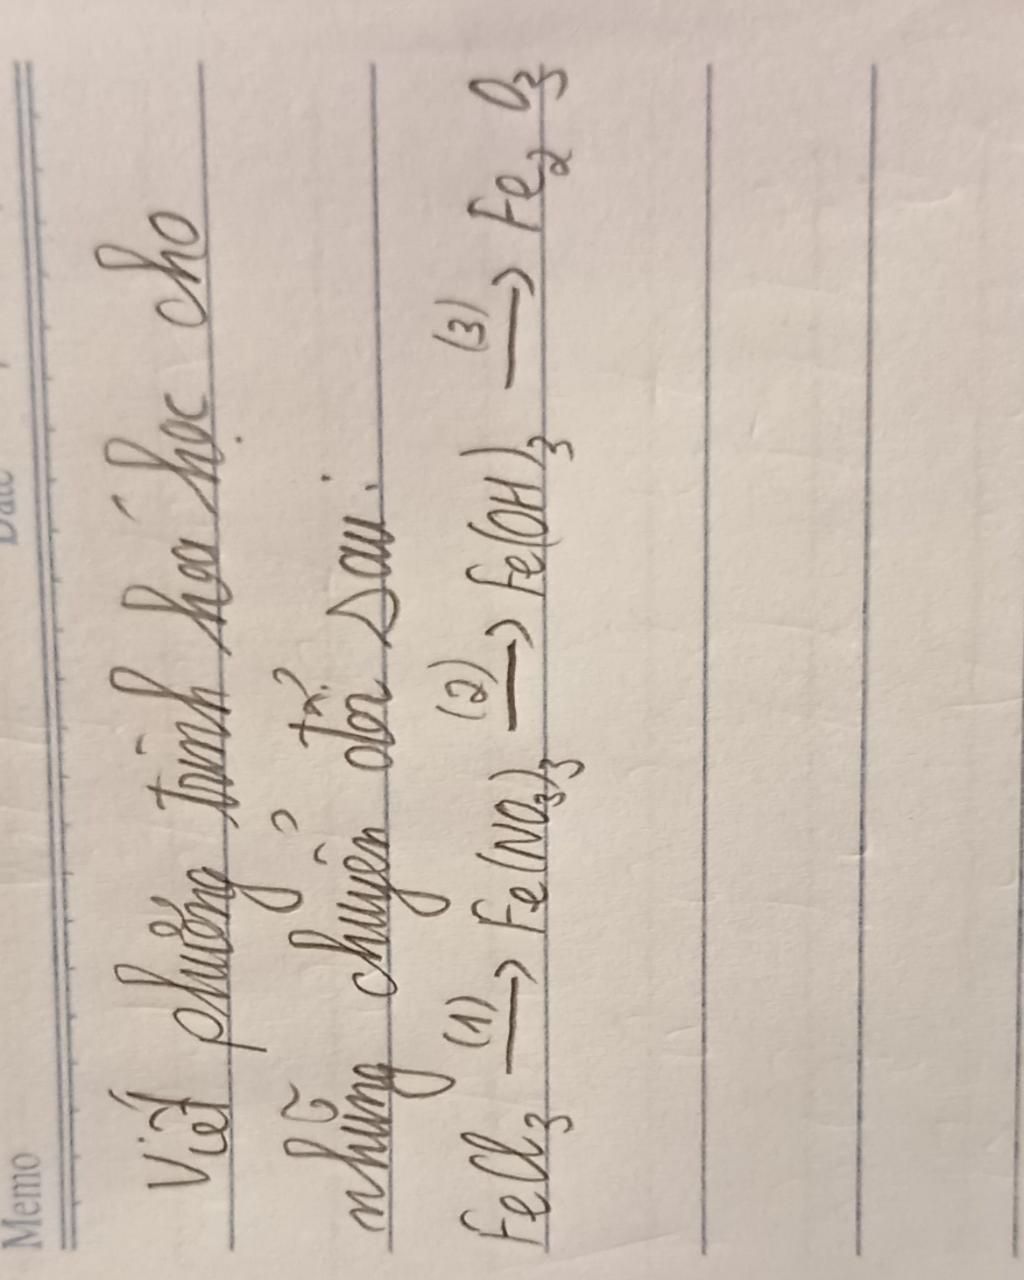 Memo
Date
Viết phương trình hoá học cho
những chuyển đổi sau:
FeCl₃ (1)→ Fe(NO₃)₃ (2)→ Fe(OH)₃ (3)→ Fe₂O₃